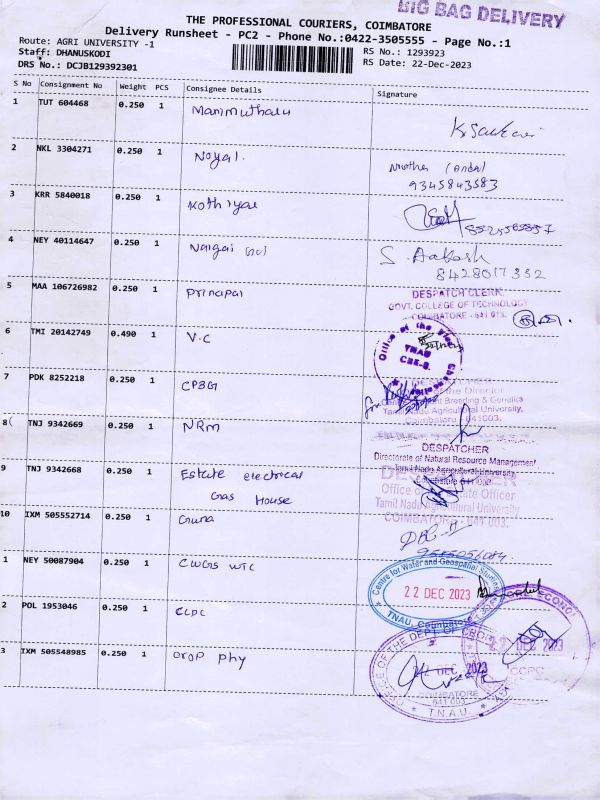 BIG BAG DELIVERY
THE PROFESSIONAL COURIERS, COIMBATORE
Delivery Runsheet - PC2 - Phone No.:0422-3505555 - Page No.:1
Route: AGRI UNIVERSITY -1
RS No.: 1293923
Staff: DHANUSKODI
RS Date: 22-Dec-2023
DRS No.: DCJB129392301
S No Consignment No Weight PCS Consignee Details Signature
1 TUT 604468 0.250 1 Manimuthalu
2 NKL 3304271 0.250 1 Noyal.
Mother
9345843583
3 KRR 5840018 0.250 1 Kothiyal
4 NEY 40114647 0.250 1 S. Aakash
8428017332
5 MAA 106726982 0.250 1 Principal
DESPATCH CLERK
GOVT. COLLEGE OF TECHNOLOGY
COIMBATORE - 641 013.
6 TMI 20142749 0.490 1 V.C
Office of the Vice
TNAU
CBE-3.
7 PDK 8252218 0.250 1 CPBG
of the Director
Centre for Plant Breeding & Genetics
Tamil Nadu Agricultural University,
Coimbatore - 641003.
8 TNJ 9342669 0.250 1 NRM
DESPATCHER
Directorate of Natural Resource Management
Tamil Nadu Agricultural University
Coimbatore 641 003
9 TNJ 9342668 0.250 1 Estate electrical
Gas House
DESPATCHER
Office of Estate Officer
Tamil Nadu Agricultural University
COIMBATORE - 641 003.
10 IXM 505552714 0.250 1 Guna
1 NEY 50087904 0.250 1 CWGS WTC
Centre for Water and Geospatial Studies
22 DEC 2023
TNAU, Coimbatore
2 POL 1953046 0.250 1 CCPC
22 DEC 2023
CCPC
3 IXM 505548985 0.250 1 Crop Phy
OFFICE OF THE DEPT. OF CROP
DEC 2023
COIMBATORE
641 003
T.N.A.U.